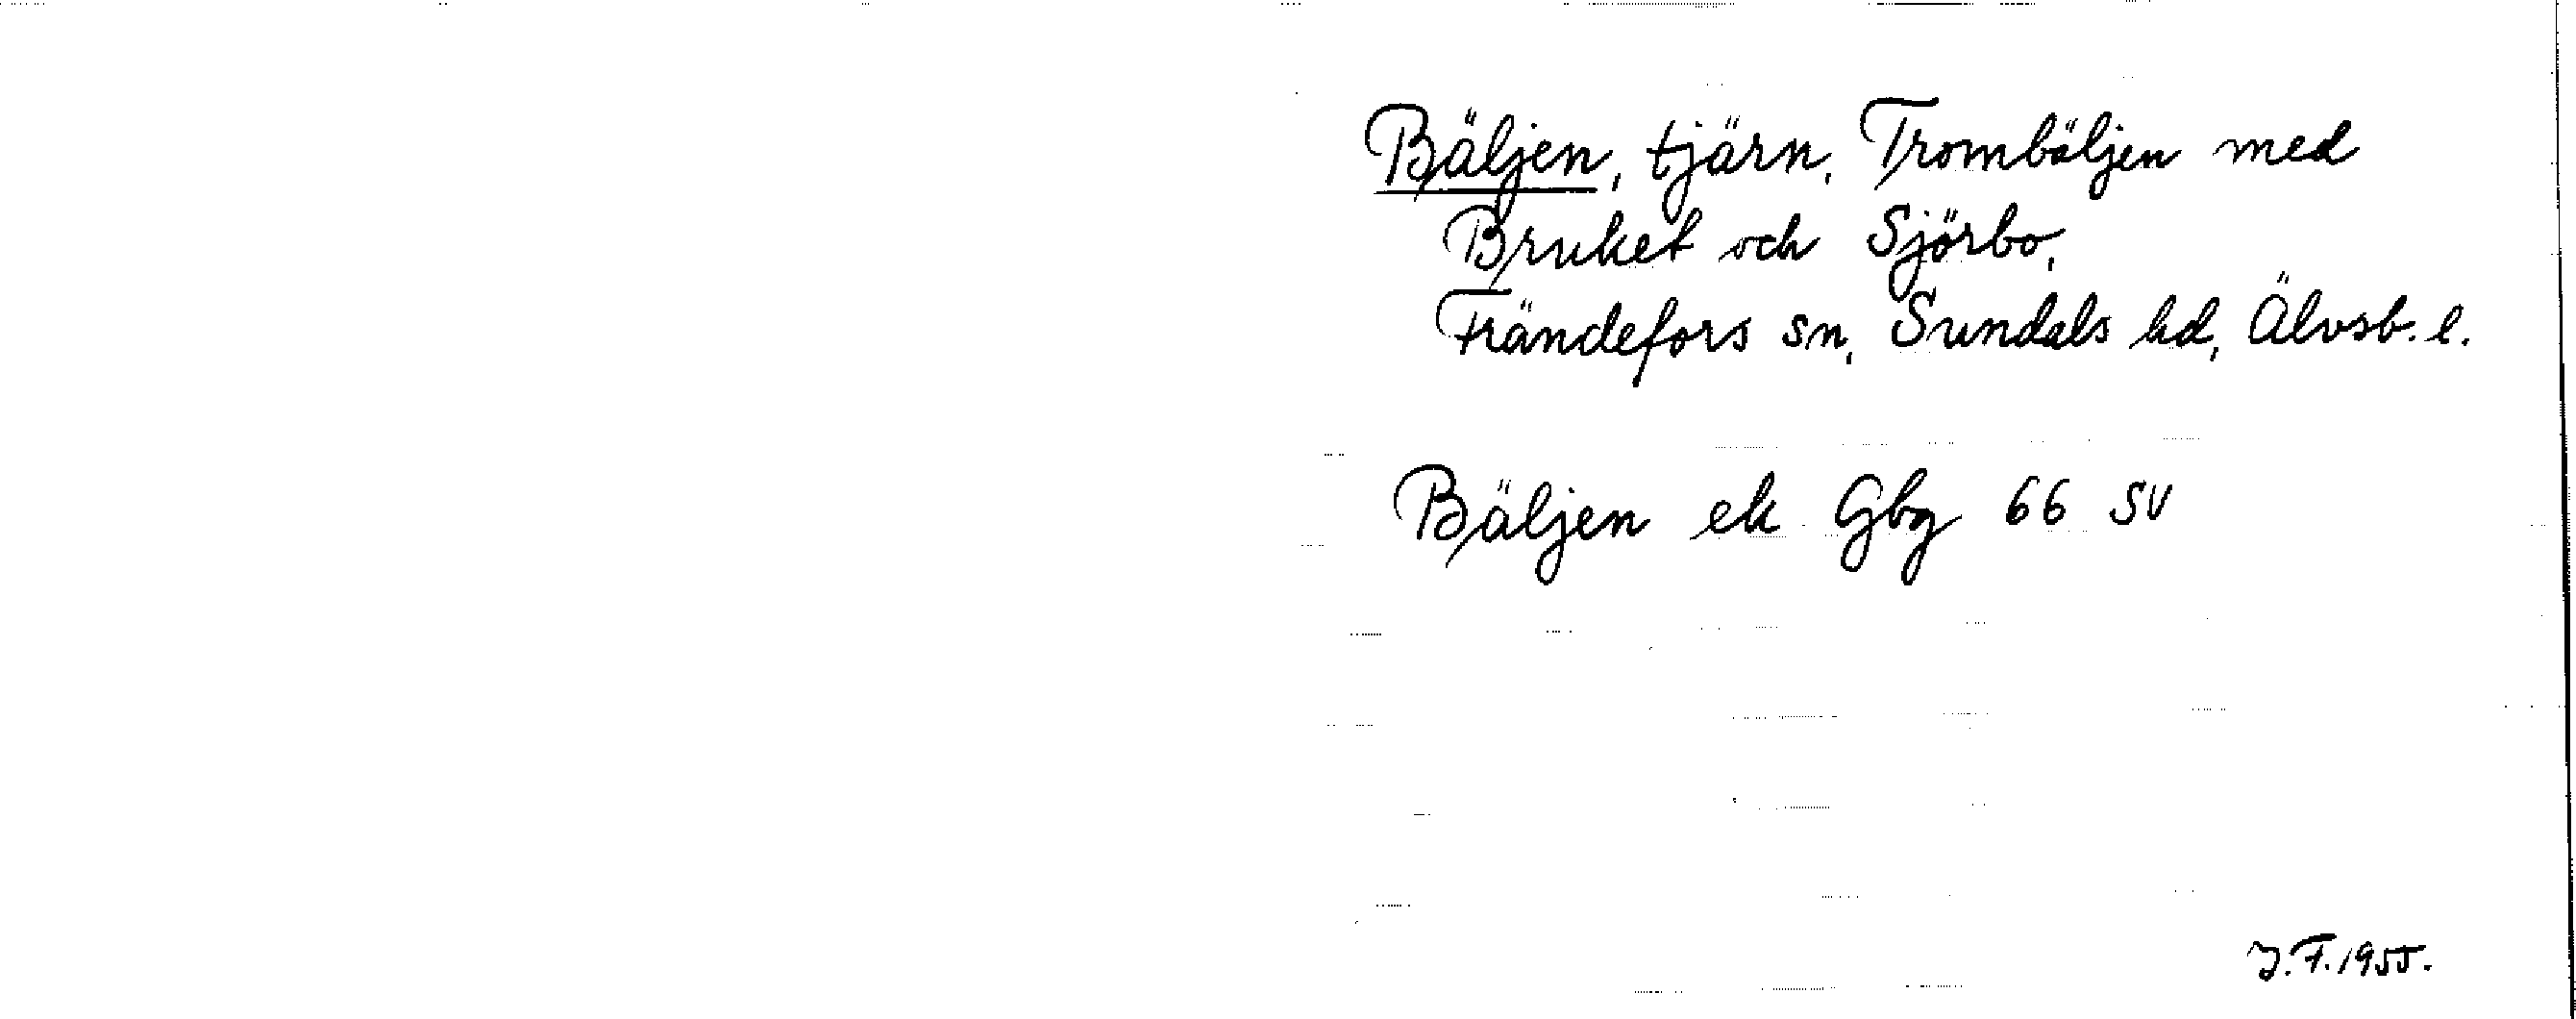 Bäljen, tjärn, Trombäljen med
Bruket och Sjörbo,
Frändefors sn, Sundals hd, Älvsb. l.
Bäljen ek Gbg 66 SV
J.F. 1955.